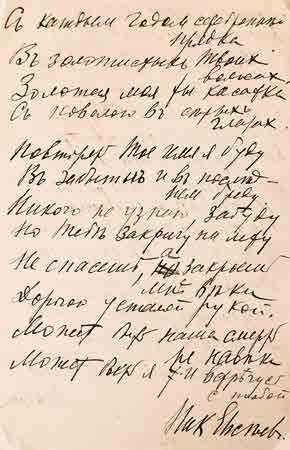 Съ каждымъ годомъ серебрянныя
прядки
Въ золотистыхъ твоихъ
волосахъ.
Золотая моя ты касатка
Съ поволокой въ сѣрыхъ
глазахъ.
Повторять твое имя я буду
Въ забытьи и въ послѣд-
немъ бреду
Никого не узнаю забуду
Но тебя закричу на льду
Не спасешь, а закроешь
мнѣ вѣки
Дорогою усталой рукой.
Можетъ быть наша смерть
не навѣки
Можетъ быть я и встрѣчусь
съ тобой
Ник Евсѣевъ